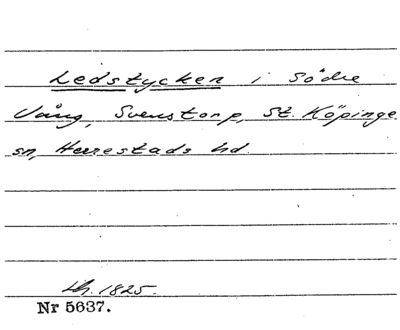 Ledstycken i Södre
Vång, Svenstorp, St. Köpinge
sn, Herrestads hd.
Lh. 1825.
Nr 5637.